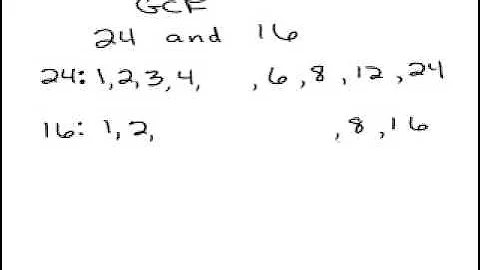 GCF
24 and 16
24: 1, 2, 3, 4, , 6, 8, 12, 24
16: 1, 2, , 8, 16